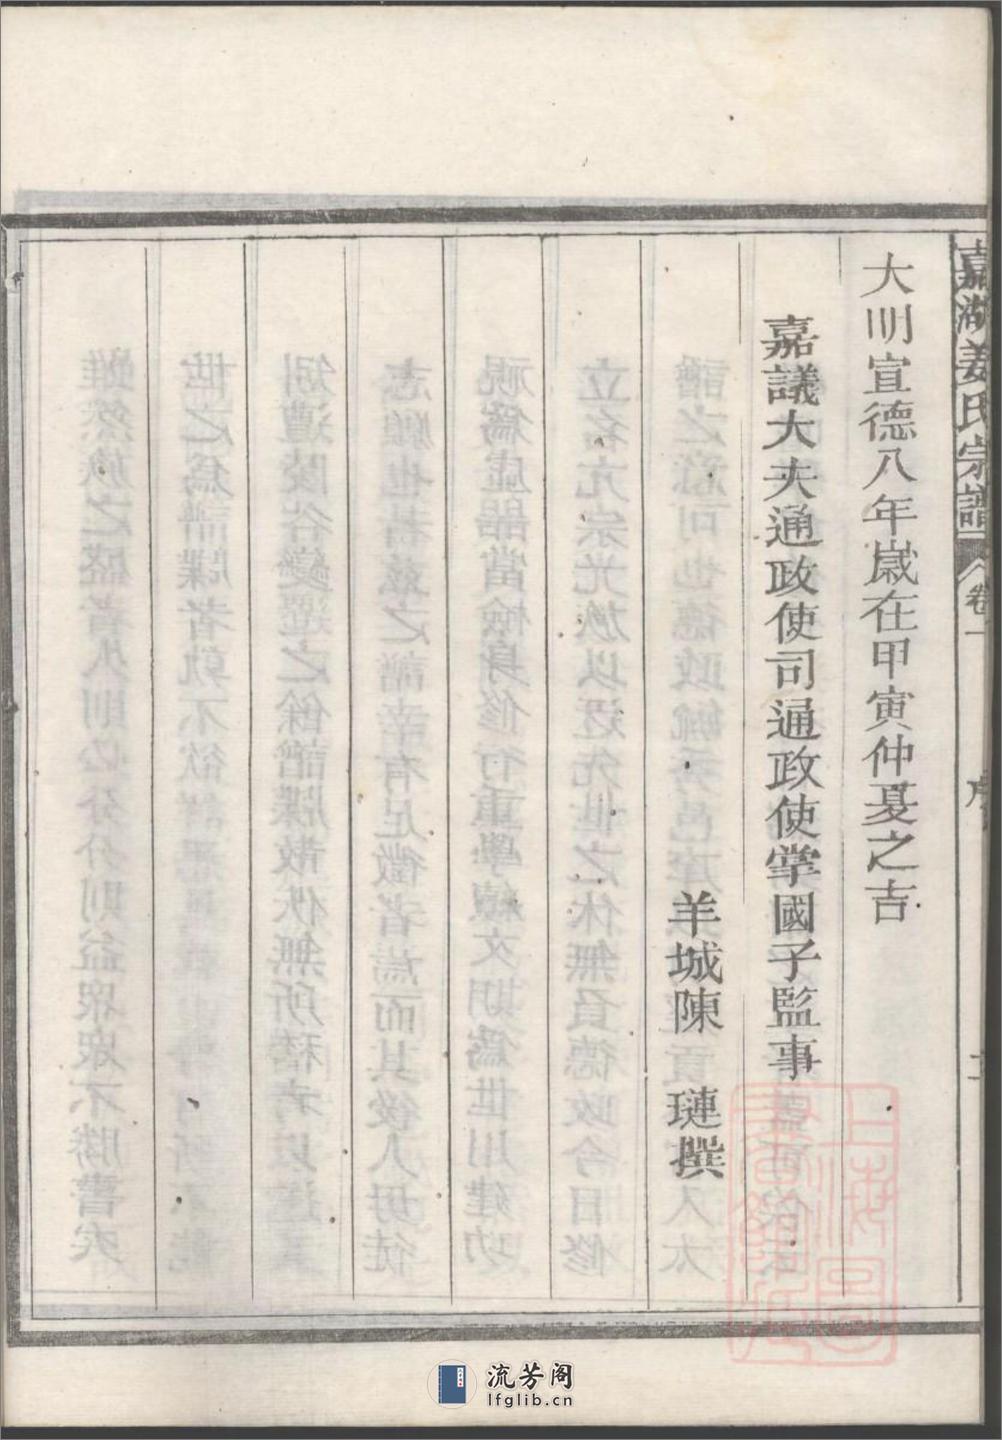 嘉湖姜氏宗譜
卷一
序
大明宣德八年歲在甲寅仲夏之吉
嘉議大夫通政使司通政使掌國子監事
羊城陳　璉撰
流芳阁
lfglib.cn